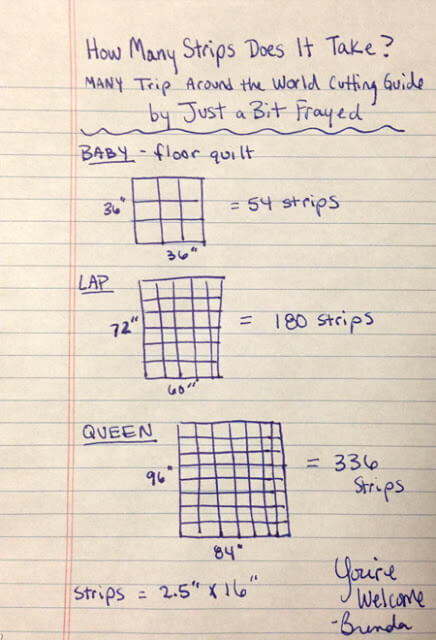 How Many Strips Does It Take?
MANY Trip Around the World Cutting Guide
by Just a Bit Frayed
BABY - floor quilt
36" = 54 strips
36"
LAP
72" = 180 strips
60"
QUEEN
96" = 336
strips
84"
strips = 2.5" x 16"
You're
Welcome
-Brenda